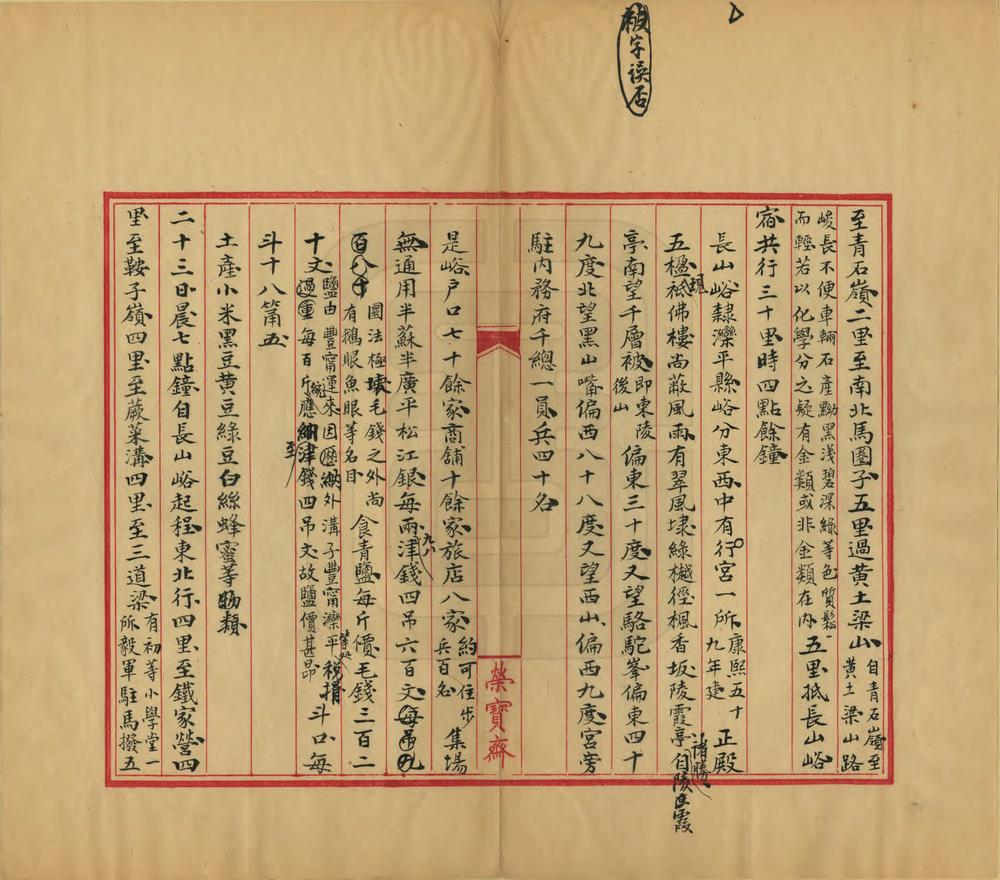 被字误否
至青石嶺二里至南北馬圈子五里過黄土梁山自青石嶺至黄土梁山路
峻長不便車輛石産黝黑淺碧深緑等色質鬆
而輕若以化學分之疑有金類或非金類在内五里抵長山峪
宿共行三十里時四點餘鐘
長山峪隸灤平縣峪分東西中有行宫一所康熙五十九年建正殿
五楹現祗佛樓尚蔽風雨有翠風埭緑樾徑楓香坂陵霞亭諸勝自陵霞
亭南望千層被即東陵後山偏東三十度又望駱駝峯偏東四十
九度北望黑山嘴偏西八十八度又望西山偏西九度宫旁
駐内務府千總一員兵四十名
是峪戶口七十餘家商舖十餘家旅店八家約可住步兵百名集場
無通用半蘇半廣平松江銀每兩津錢四吊六百文每吊九八
百八十圜法極壞毛錢之外尚有鵝眼魚眼等名目食青鹽每斤價毛錢三百二
十文鹽由豐甯運來因應納外溝子豐甯灤平等處税捐
過重每百斤統應納津錢至四吊文故鹽價甚昂斗口每
斗十八筩五
土産小米黑豆黄豆緑豆白絲蜂蜜等物類
二十三日晨七點鐘自長山峪起程東北行四里至鐵家營四
里至鞍子嶺四里至蕨菜溝四里至三道梁有初等小學堂一所毅軍駐馬撥五
榮寶齋